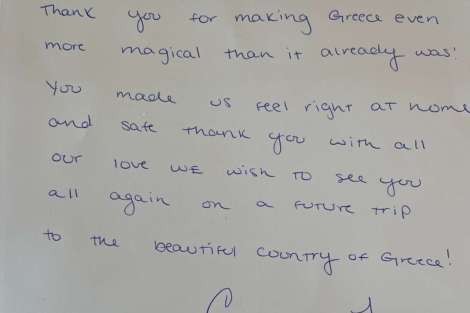 Thank you for making Greece even
more magical than it already was!
You made us feel right at home
and safe thank you with all
our love we wish to see you
all again on a future trip
to the beautiful country of Greece!